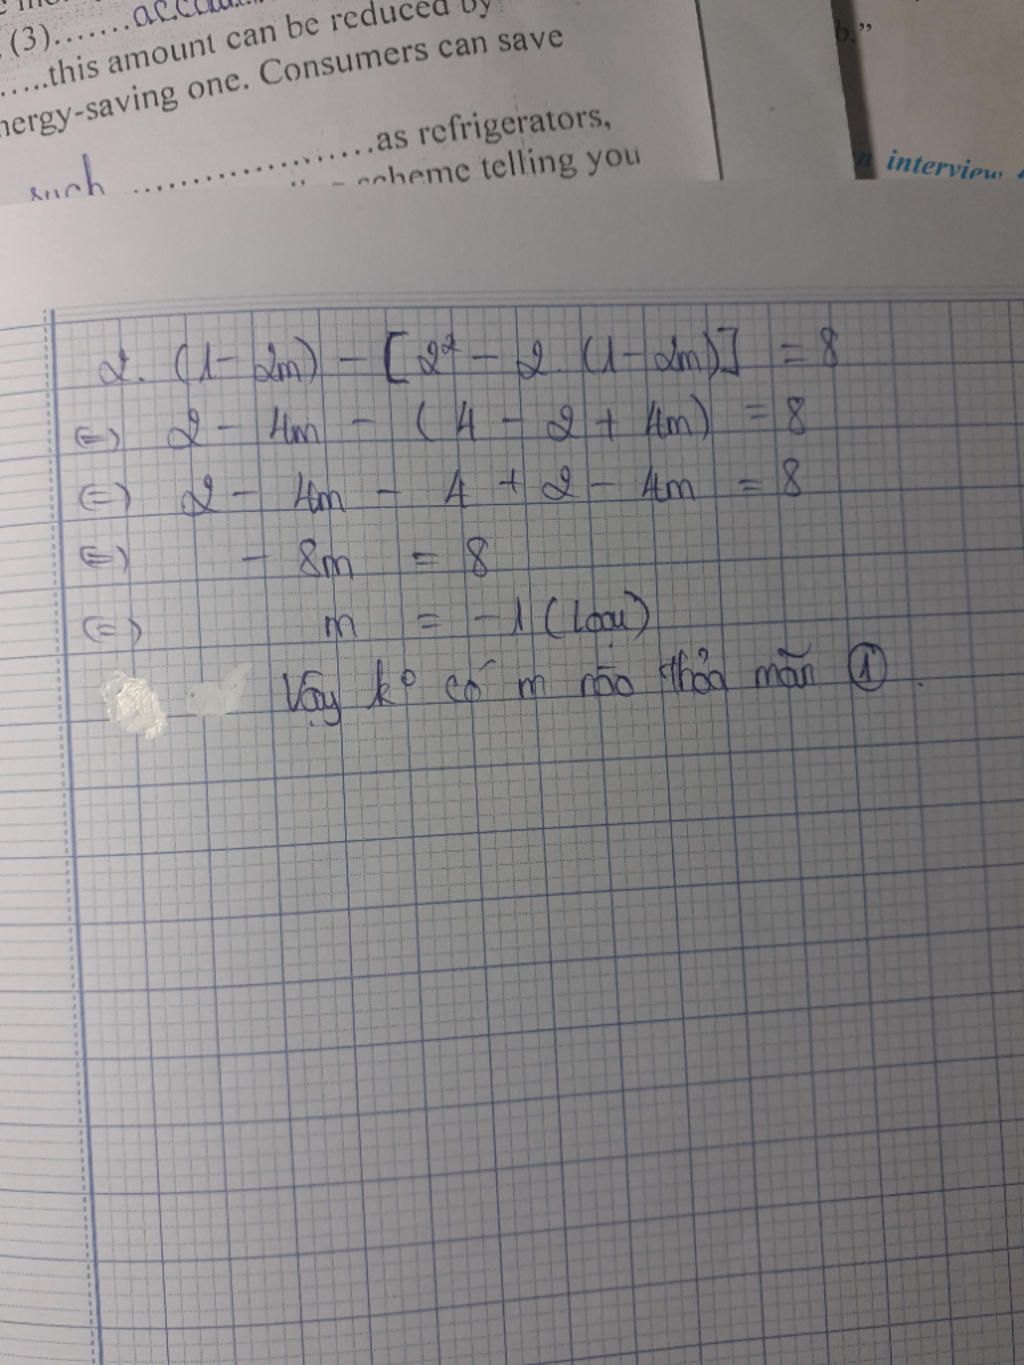 (3).......
.....this amount can be reduced by
nergy-saving one. Consumers can save
such .......................as refrigerators,
scheme telling you
b.”
interview
2. (1 - 2m) - [2² - 2. (1 - 2m)] = 8
⇔ 2 - 4m - (4 - 2 + 4m) = 8
⇔ 2 - 4m - 4 + 2 - 4m = 8
⇔ - 8m = 8
⇔ m = -1 (loại)
Vậy k° có m nào thỏa mãn ①.